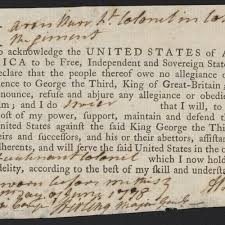 Aaron Burr Lt Colonel in
Regiment
to acknowledge the UNITED STATES of A
ICA to be Free, Independent and Sovereign State
declare that the people thereof owe no allegiance o
ence to George the Third, King of Great-Britain;
nounce, refute and abjure any allegiance or obedie
im; and I do swear that I will, to
ost of my power, support, maintain and defend th
United States against the said King George the Thi
eirs and successors, and his or their abettors, assista
dherents, and will serve the said United States in the o
Lieutenant Colonel which I now hold
fidelity, according to the best of my skill and understa
Sworn before me this
day of 1778
Major Genl